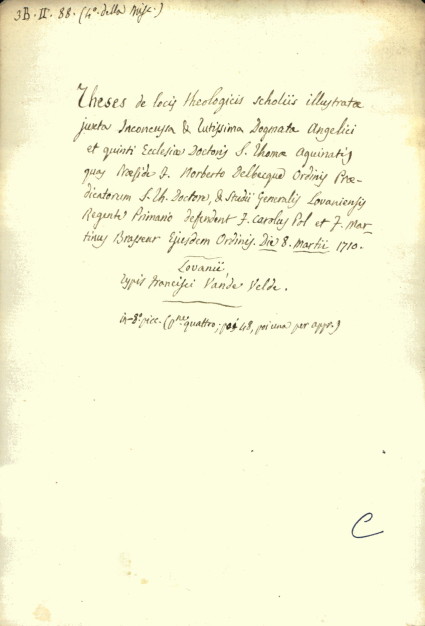 3B. II. 88. (4º. della Misc.)
Theses de locis theologicis scholiis illustratæ
juxta Inconcussa & tutissima Dogmata Angelici
et quinti Ecclesiæ Doctoris S. Thomæ Aquinatis
quas Præside F. Norberto Delbecque Ordinis Præ-
dicatorum S. Th. Doctore, & Studii Generalis Lovaniensis
Regente Primario defendent F. Carolus Pol et F. Mar-
tinus Brasseur Ejusdem Ordinis. Die 8. Martii 1710.
Lovanii,
typis Francisci Vande Velde.
in-8º. picc. (pne quattro; poi 48, poi una per app.)
C